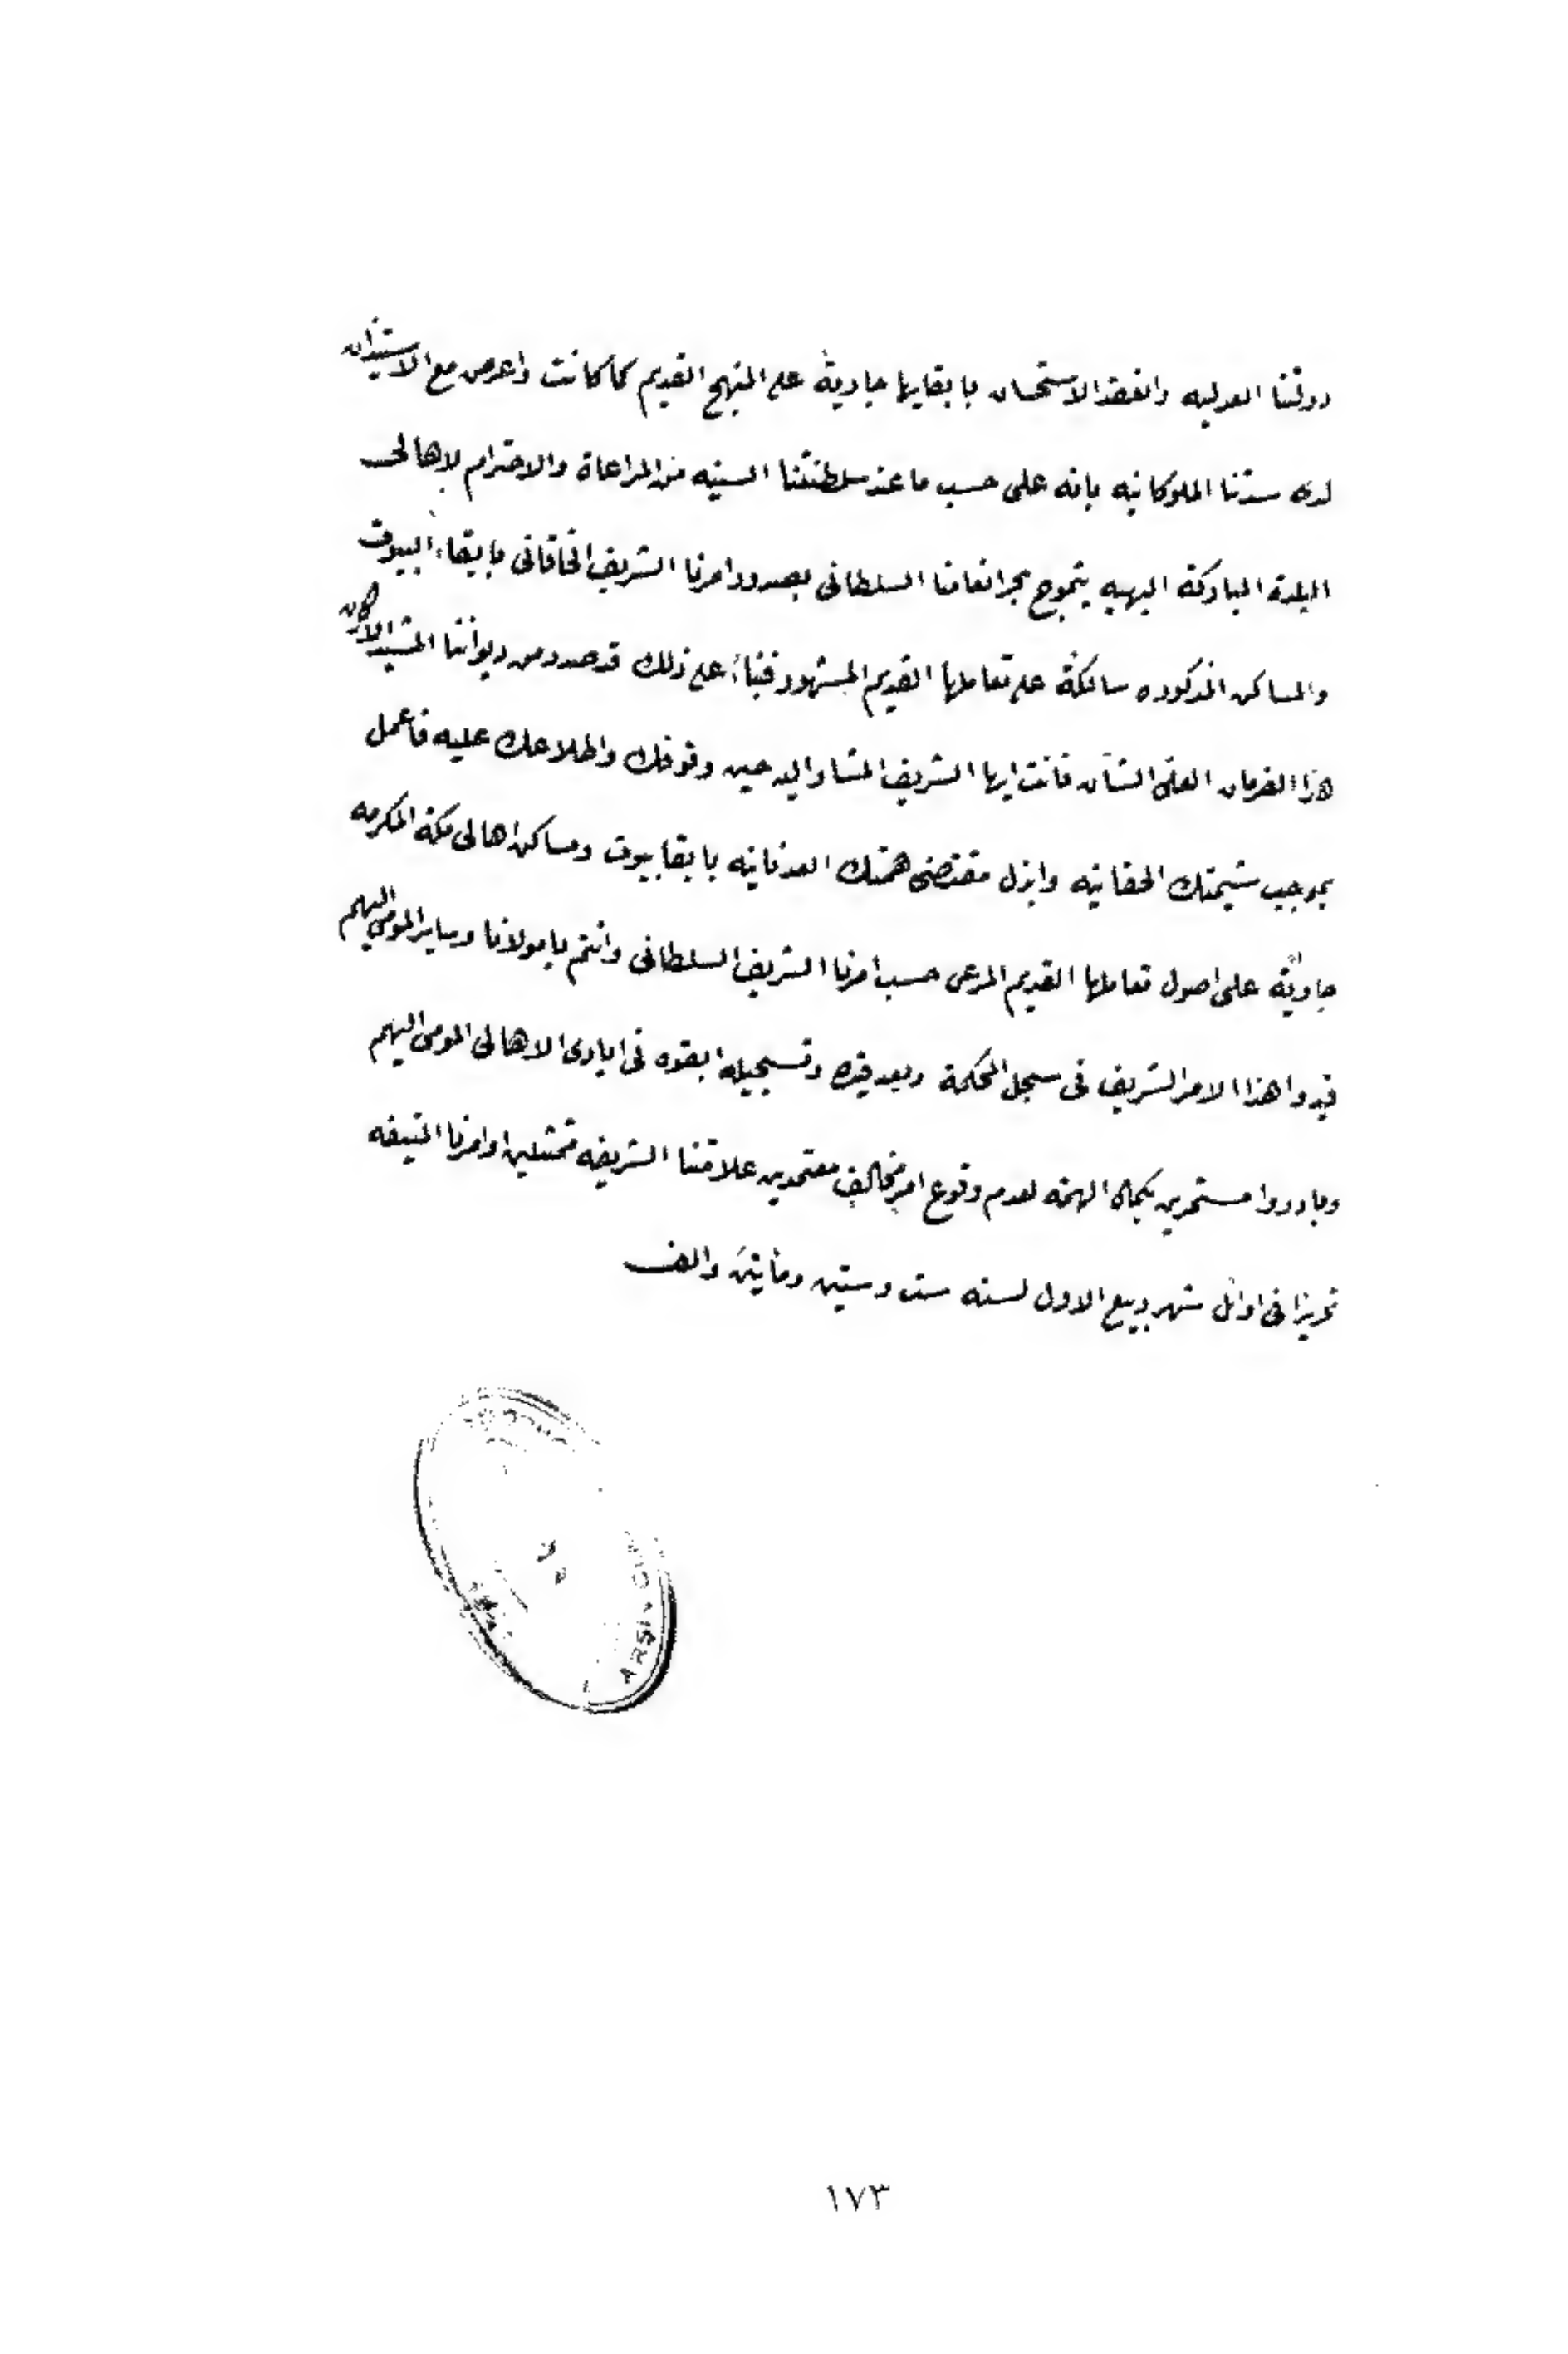 دولتنا العدليه وانعقد الاستحسان بابقايها جارية على المنهج القديم كما كانت واعرض مع الاستيذان
لدى سدتنا الملوكانيه بانه على حسب ما عند سلطنتنا السنيه من المراعاة والاحترام لاهالى
البلدة المباركة البهيه يتموج بحر انعامنا السلطانى بصدور امرنا الشريف الخاقانى بابقاء البيوت
والمساكن المذكوره سالكة على تعاملها القديم المشهود فبناءً على ذلك قد صدر من ديواننا المشيد الاركان
هذا الفرمان العلى الشان فانت ايها الشريف المشار اليه حين وقوفك واطلاعك عليه فاعمل
بموجب شيمتك الحقانيه وابذل مقتضى همتك العدنانيه بابقا بيوت ومساكن اهالى مكة المكرمه
جارية على اصول تعاملها القديم المرعى حسب امرنا الشريف السلطانى وانتم يا مولانا وساير المومى اليهم
قيدوا هذا الامر الشريف فى سجل المحكمة وبعد قيده وتسجيله ابقوه فى ايادى الاهالى المومى اليهم
وبادروا مستمرين بكمال الهمه لعدم وقوع امر مخالف معتمدين علامتنا الشريفه ممتثلين اوامرنا المنيفه
تحريرا فى اوائل شهر ربيع الاول لسنه ست وستين ومأيتين والف
ARŞİV
١٧٣